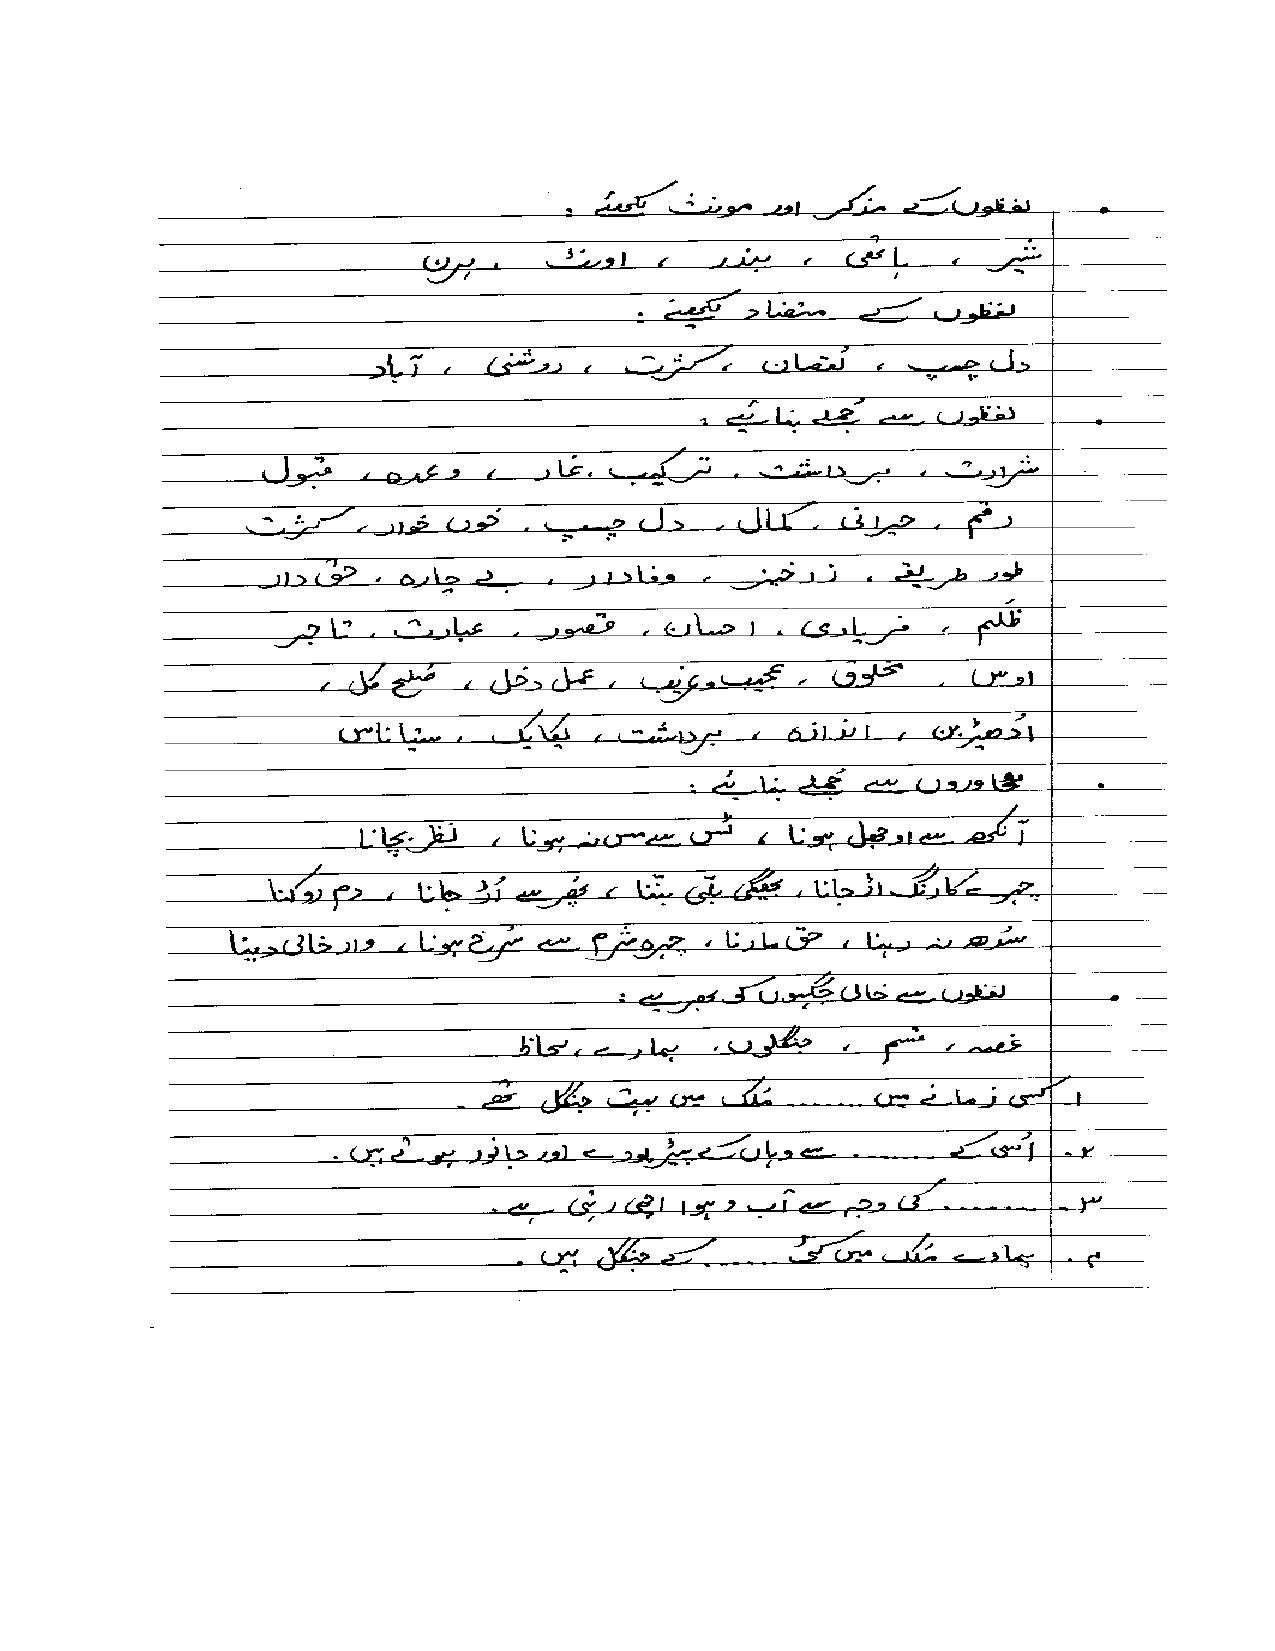 • لفظوں کے مذکر اور مونث لکھئے :
شیر ، ہاتھی ، بندر ، اونٹ ، ہرن
لفظوں کے متضاد لکھئے :
دل چسپ ، نُقصان ، کثرت ، روشنی ، آباد
• لفظوں سے جُملے بنائیے :
شرارت ، برداشت ، ترکیب ، غار ، وعدہ ، قبول
رقم ، حیرانی ، کمال ، دل چسپ ، خوں خوار ، کثرت
طور طریقے ، زرخیز ، وفادار ، بے چارہ ، حق دار
ظُلم ، فریادی ، احسان ، قصور ، عبارت ، تاجر
اوس ، مخلوق ، عجیب و غریب ، عمل دخل ، صُلح کل ،
اُدھیڑبن ، اندازہ ، برداشت ، یکایک ، ستیاناس
• محاوروں سے جُملے بنائیے :
آنکھ سے اوجھل ہونا ، ٹس سے مس نہ ہونا ، نظر بچانا
چہرے کا رنگ اڑ جانا ، بھیگی بلی بننا ، پھر سے اُڑ جانا ، دم روکنا
سُدھ نہ رہنا ، حق مارنا ، چہرہ شرم سے سُرخ ہونا ، وار خالی دینا
• لفظوں سے خالی جگہوں کو بھریے :
غصہ ، قسم ، جنگلوں ، ہمارے ، لحاظ
۱ کسی زمانے میں ........ مُلک میں بہت جنگل تھے ۔
۲۔ اُسی کے ........ سے وہاں کے پیڑ پودے اور جانور ہوتے ہیں ۔
۳۔ ........ کی وجہ سے آب و ہوا اچھی رہتی ہے ۔
۴۔ ہمارے مُلک میں کئی ...... کے جنگل ہیں ۔